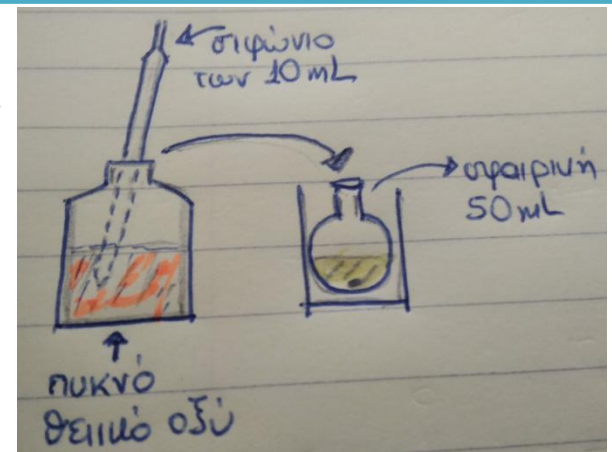 σιφώνιο
των 10 mL
σφαιρική
50 mL
πυκνό
θειικό οξύ